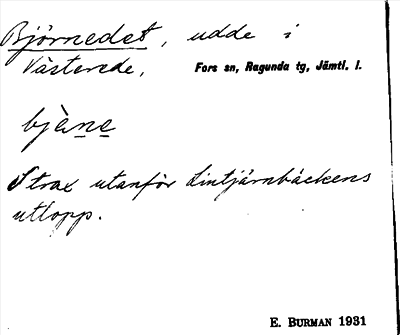 Björnedet, udde i
Västerede, Fors sn, Ragunda tg, Jämtl. l.
bjène
Strax utanför Lintjärnbäckens
utlopp.
E. BURMAN 1931